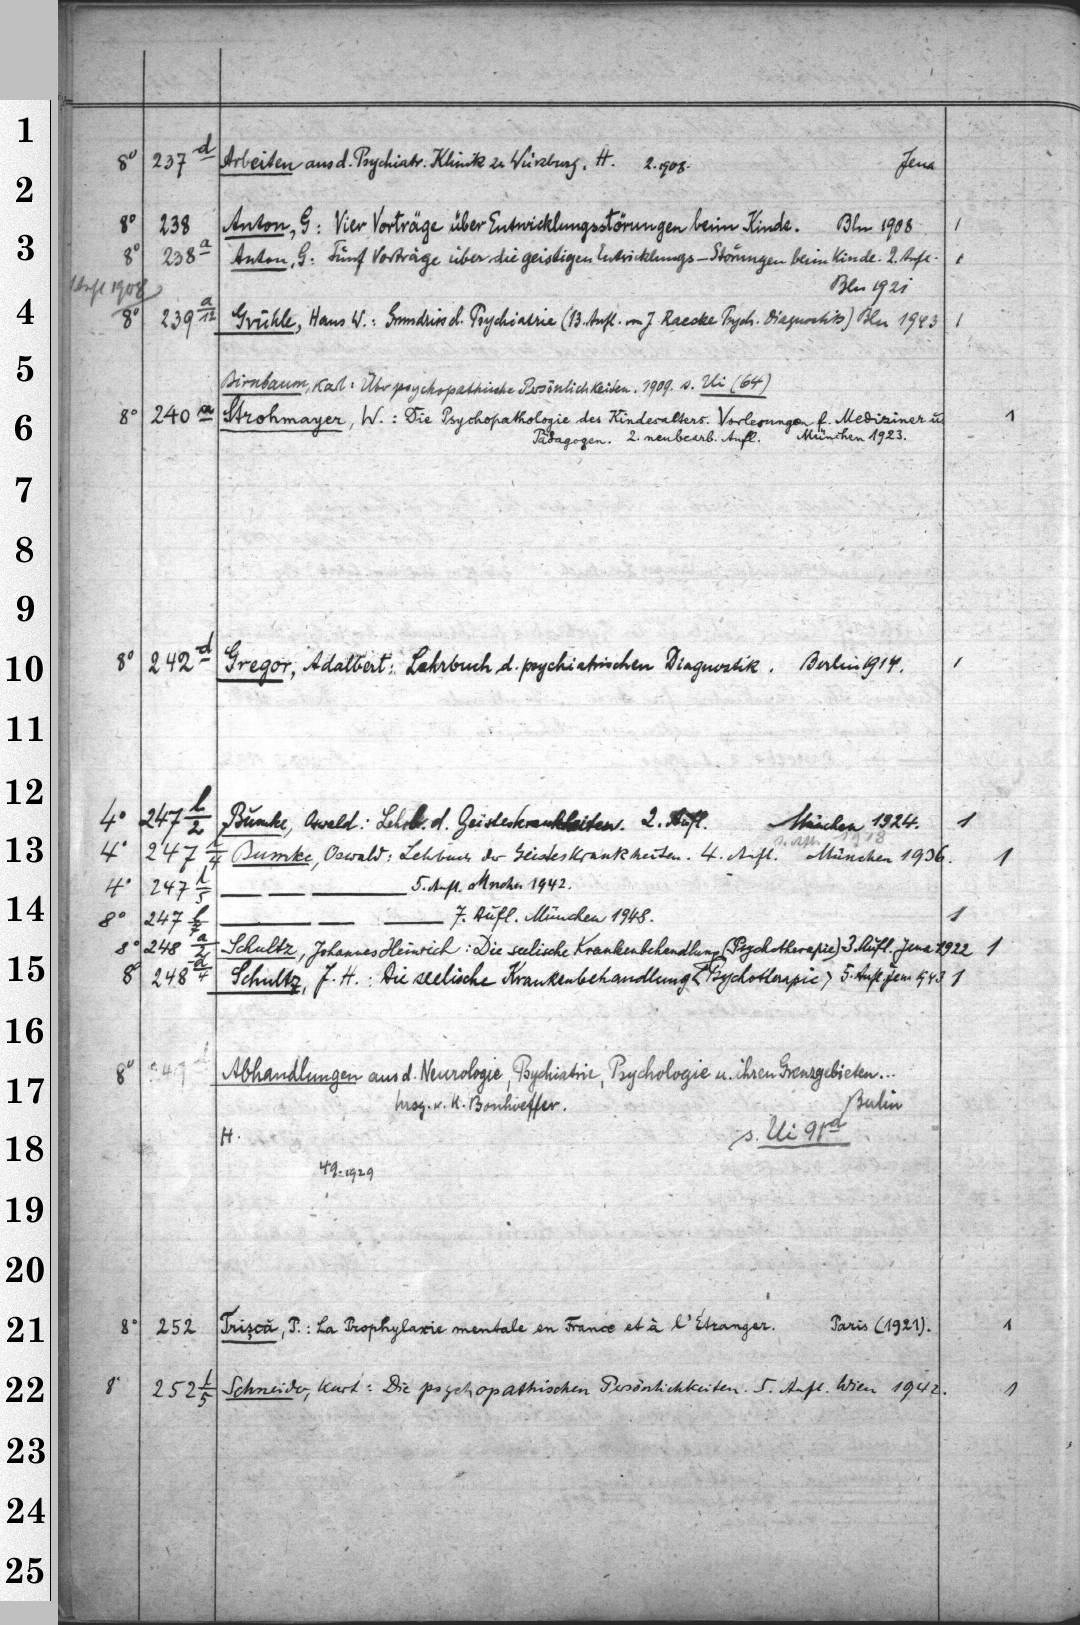 1
2
3
4
5
6
7
8
9
10
11
12
13
14
15
16
17
18
19
20
21
22
23
24
25
8° 237 d Arbeiten aus d. Psychiatr. Klinik zu Würzburg. H. 2.1908. Jena
8° 238 Anton, G: Vier Vorträge über Entwicklungsstörungen beim Kinde. Bln 1908 1
8° 238 a Anton, G: Fünf Vorträge über die geistigen Entwicklungs-Störungen beim Kinde. 2. Aufl. 1
Bln 1921
Aufl 1908
8° 239 a/12 Gruhle, Hans W.: Grundriss d. Psychiatrie (13. Aufl. von J. Raecke Psych. Diagnostik) Bln 1943 1
Birnbaum, Karl: Über psychopathische Persönlichkeiten. 1909. s. Ui (64)
8° 240 m Strohmayer, W.: Die Psychopathologie des Kindesalters. Vorlesungen f. Mediziner u. 1
Pädagogen. 2. neubearb. Aufl. München 1923.
8° 242 d Gregor, Adalbert: Lehrbuch d. psychiatrischen Diagnostik. Berlin 1914. 1
4° 247 l/2 Bumke, Oswald: Lehrb. d. Geisteskrankheiten. 2. Aufl. München 1924. 1
4° 247 l/4 Bumke, Oswald: Lehrbuch der Geisteskrankheiten. 4. Aufl. München 1936. 1
4° 247 l/5 — — — 5. Aufl. München 1942.
8° 247 l/7 — — — 7. Aufl. München 1948. 1
8° 248 a/2 Schultz, Johannes Heinrich: Die seelische Krankenbehandlung (Psychotherapie) 3. Aufl. Jena 1922 1
8° 248 a/4 Schultz, J. H.: Die seelische Krankenbehandlung <Psychotherapie> 5. Aufl Jena 943 1
8° 249 Abhandlungen aus d. Neurologie, Psychiatrie, Psychologie u. ihren Grenzgebieten...
hrsg. v. K. Bonhoeffer. Berlin
H. s. Ui 98d
49.1929
8° 252 Trişcă, P.: La Prophylaxie mentale en France et à l'Étranger. Paris (1921). 1
8° 252 l/5 Schneider, Kurt: Die psychopathischen Persönlichkeiten. 5. Aufl. Wien 1942. 1